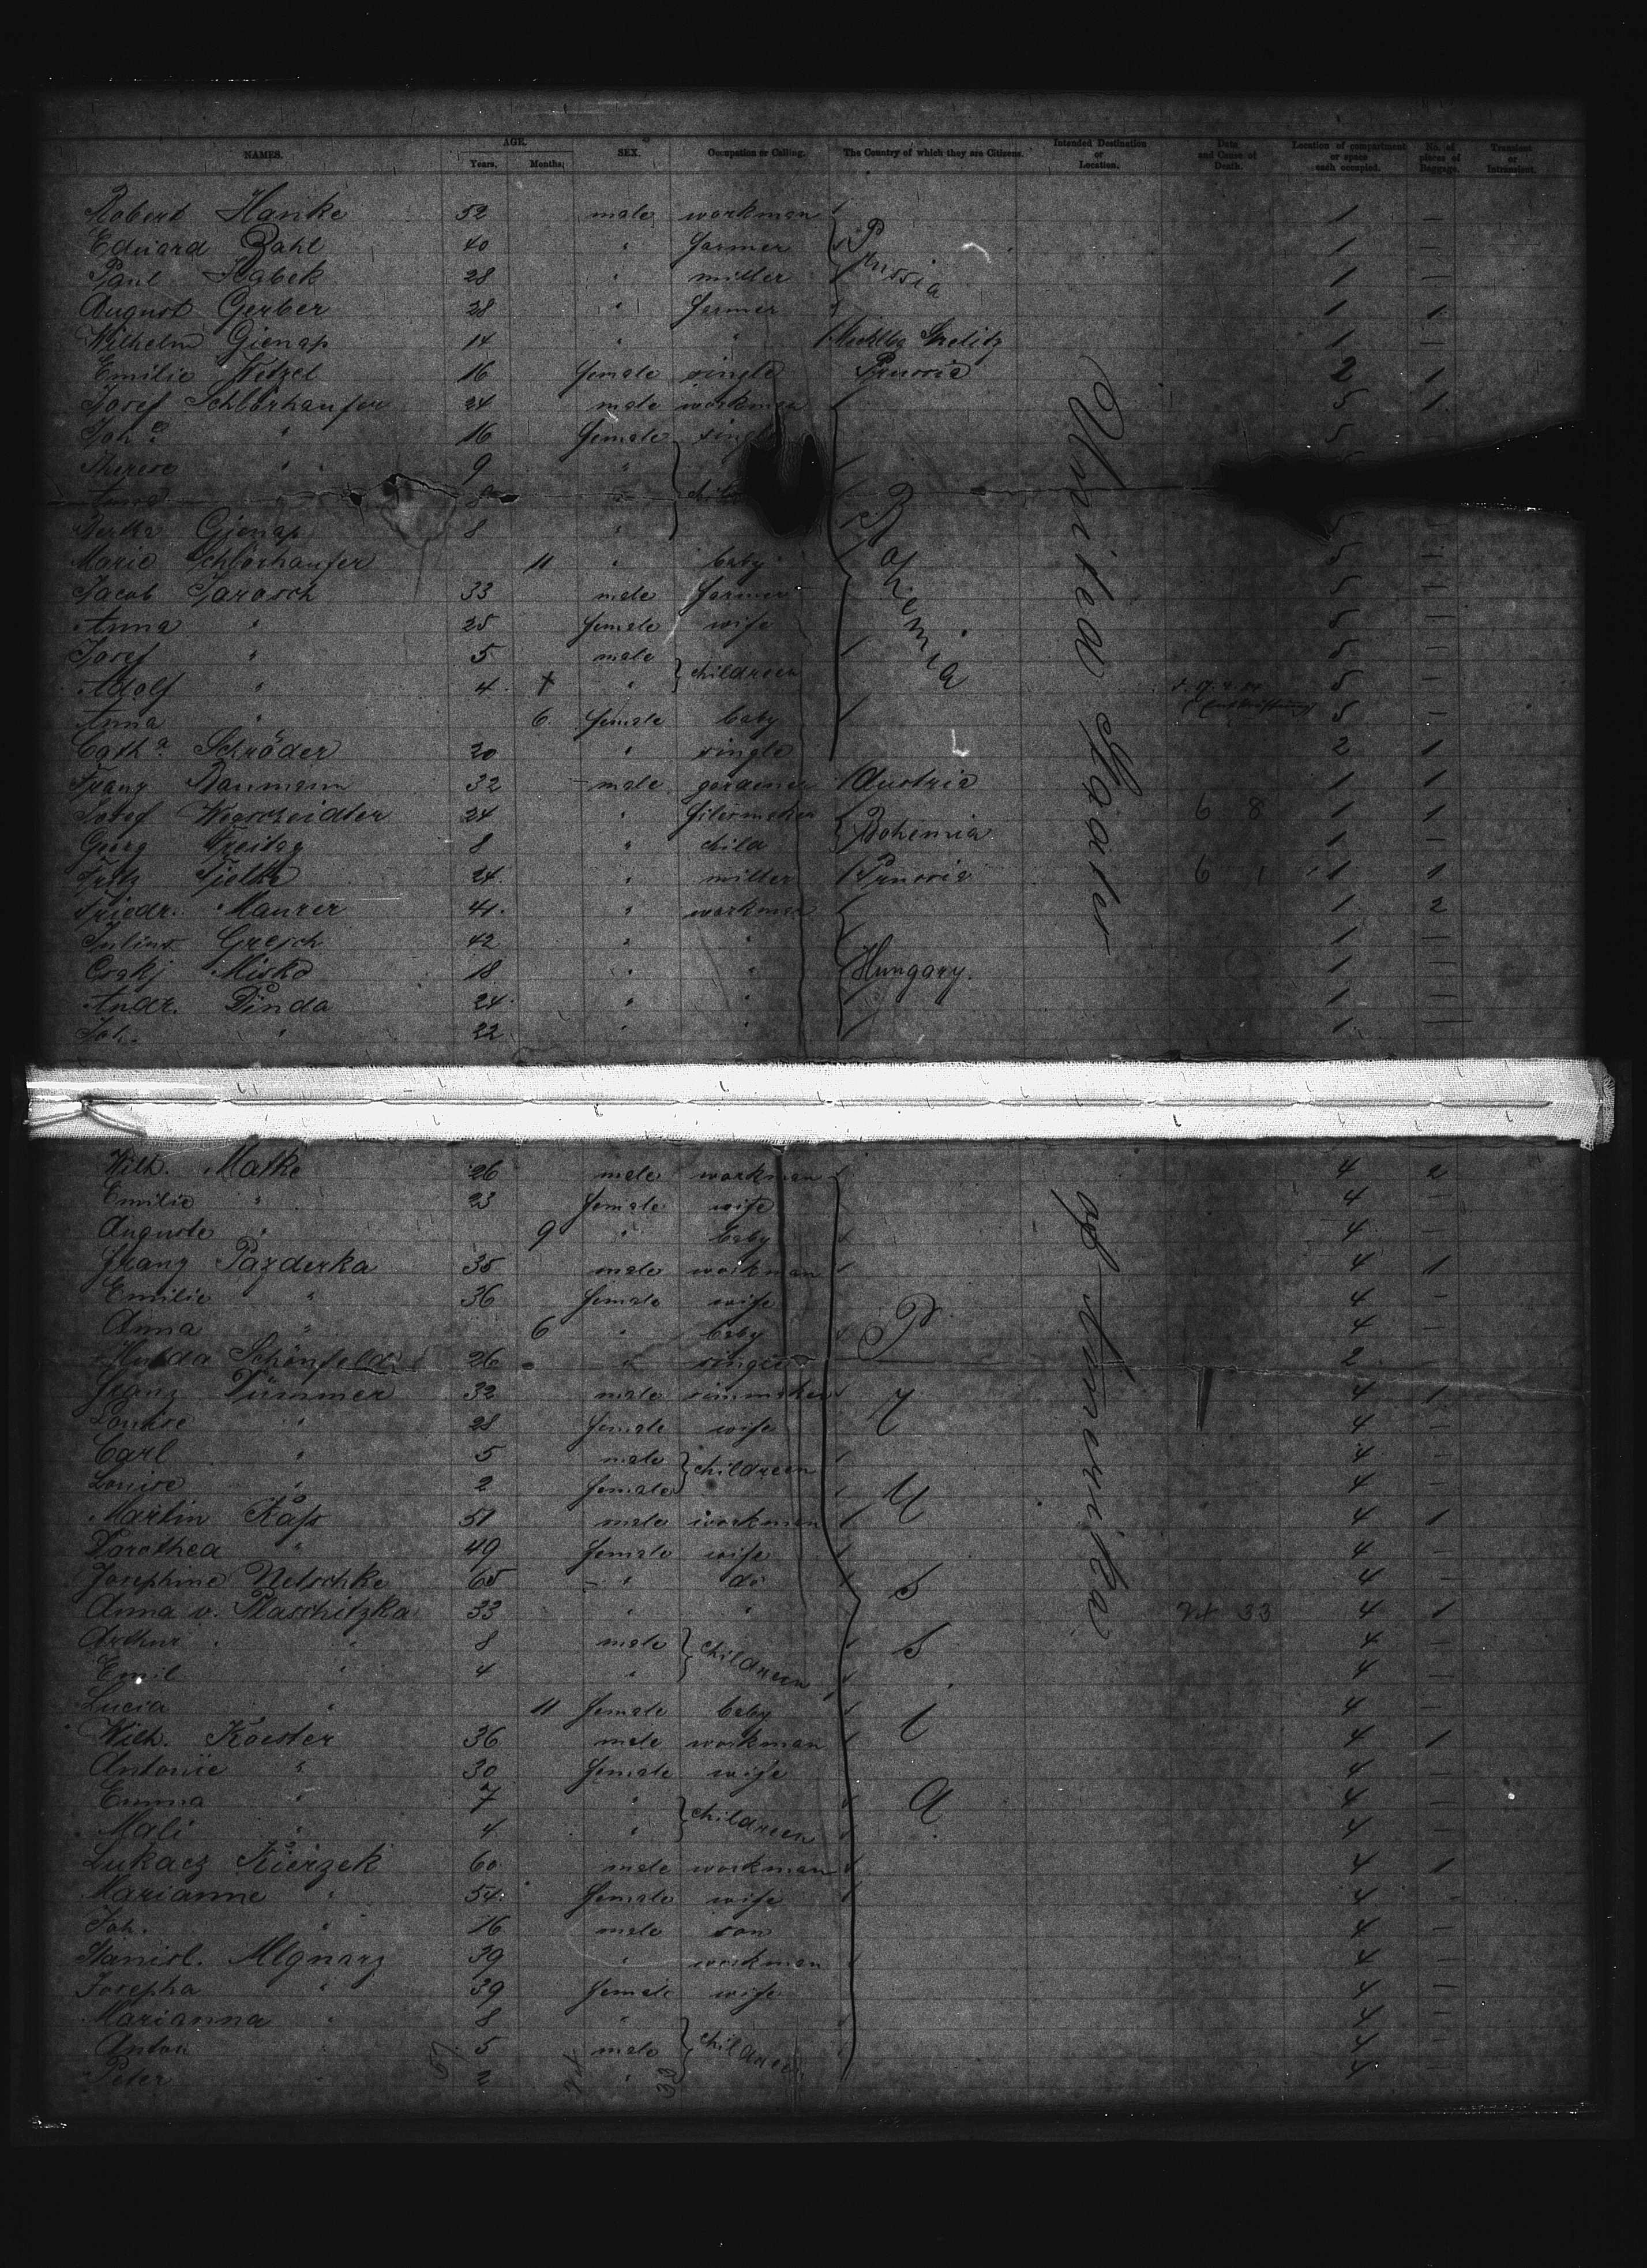 NAMES. AGE. Years. Months. SEX. Occupation or Calling. The Country of which they are Citizens. Intended Destination or Location. Date and Cause of Death. Location of compartment or space each occupied. No. of pieces of Baggage. Transient or Intransient.
Robert Hanke 52 male workman 1 —
Eduard Zahl 40 " farmer Prussia 1 —
Paul Habek 28 " miller 1 —
August Gerber 28 " farmer 1 1
Wilhelm Gienap 14 " " Mecklbg Strelitz 1 —
Emilie Wetzel 16 female single Prussia 2 1
Josef Schlörhaufer 24 male workman 5 1
Joh.a " 16 female single 5
Therese " 9 "
Anna 8 "
Bertha Gienap 8 " 5
Marie Schlörhaufer 11 " baby 5 —
Jacob Jarosch 33 male farmer Bohemia 5 —
Anna " 25 female wife 5 —
Josef " 5 male children 5 —
Adolf " 4 " 5 —
Anna " 6 female baby 5 —
Cath.a Schröder 20 " single 2 1
Franz Baumann 32 male gardener Austria 1 1
Josef 24 " Bohemia 6 8 1 1
Georg Freitag 8 " child 1 —
Fritz 24 " miller Prussia 6 1 1 1
Friedr. Maurer 41 " workman 1 2
Julius Greich 42 " " 1 —
Misko 18 " " Hungary. 1 —
Andr. Dinda 24 " " 1 —
Joh. " 22 " " 1 —
United States
Wilh. Malke 26 male workman 4 2
Emilie " 23 female wife 4 —
Auguste " 9 " baby 4 —
Franz Pazderka 35 male workman 4 1
Emilie " 36 female wife 4 —
Anna " 6 " baby 4 —
Hulda Schönfeld 26 " single 2
Franz Dümmer 32 male 4 1
Louise " 28 female wife 4 —
Carl " 5 male children 4 —
Louise " 2 female 4 —
Martin Kass 51 male workman 4 1
Dorothea " 49 female wife 4 —
Josephine Netschke 65 " do 4 —
Anna v. Plaschitzka 33 " " 33 4 1
Arthur " 8 male children 4 —
Emil " 4 " 4 —
Lucia " 11 female baby 4 —
Wilh. Koester 36 male workman 4 1
Antonie " 30 female wife 4 —
Emma " 7 " children 4 —
Mali " 4 " 4 —
Lukacz Kierzek 60 male workman 4 1
Marianne " 54 female wife 4 -
Joh. " 16 male son 4 —
Stanisl. Mlynarz 39 " workman 4 —
Josepha " 39 female wife 4 —
Marianna " 8 " children 4 —
Anton " 5 male 4 —
Peter 2 " 4 —
Prussia
of Amerika